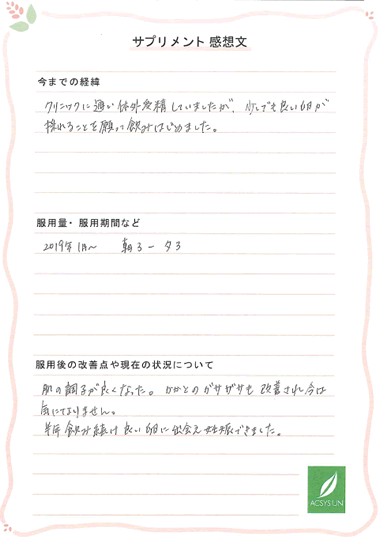 サプリメント 感想文
今までの経緯
クリニックに通い体外受精していましたが、少しでも良い卵が
採れることを願って飲みはじめました。
服用量・服用期間など
2019年1月～　朝3－夕3
服用後の改善点や現在の状況について
肌の調子が良くなった。かかとのガサガサも改善され今は
気になりません。
半年飲み続け良い卵に出会え妊娠できました。
ACSYSIUN